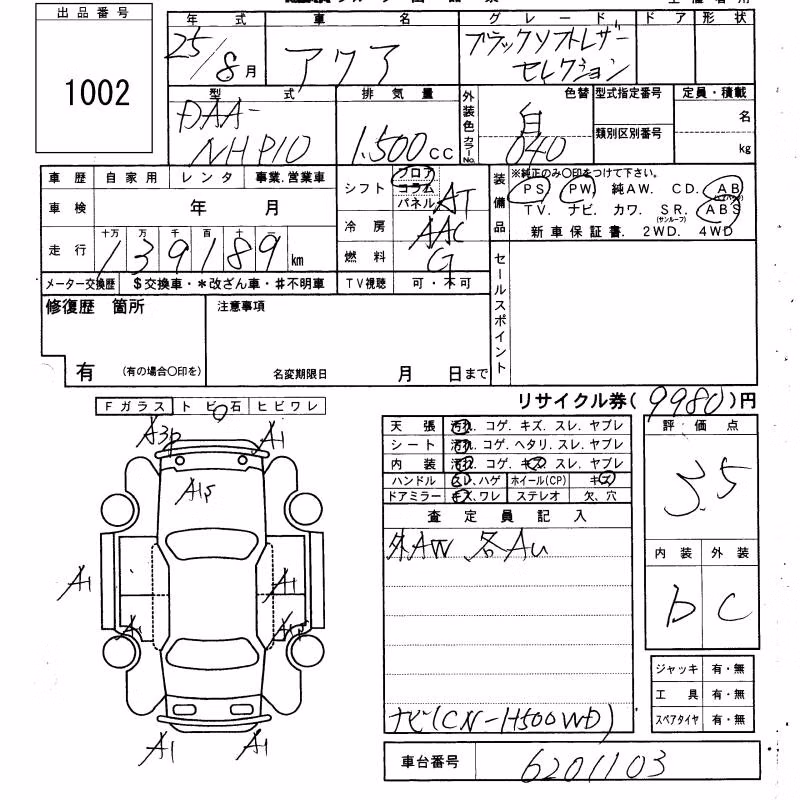 出品番号
1002
年式 車名 グレード ドア 形状
25/8月 アクア ブラックソフトレザー
セレクション
型式 排気量 外装色 カラーNo. 色替 型式指定番号 定員・積載
DAA-
NHP10 1.500cc 白 040 類別区別番号 名 kg
車歴 自家用 レンタ 事業.営業車 シフト フロア コラム パネル AT
車検 年 月 冷房 AAC
走行 十万 万 千 百 十 一
139189 km 燃料 G
メーター交換歴 $交換車・*改ざん車・#不明車 TV視聴 可・不可
装備品 ※純正のみ○印をつけて下さい。
PS. PW. 純AW. CD. AB
TV. ナビ. カワ. SR.(サンルーフ) ABS
新車保証書. 2WD. 4WD
修復歴 箇所 注意事項 セールスポイント
有 (有の場合○印を) 名変期限日 月 日まで
リサイクル券(9980)円
Fガラス トビ石 ヒビワレ
A3P A1
A1S
A1 A1
A1
A1 A1
天張 汚れ. コゲ. キズ. スレ. ヤブレ
シート 汚れ. コゲ. ヘタリ. スレ. ヤブレ
内装 汚れ. コゲ. キズ. スレ. ヤブレ
ハンドル スレ.ハゲ ホイール(CP) キズ
ドアミラー キズ.ワレ ステレオ 欠.穴
評価点
3.5
内装 外装
b C
査定員記入
外AW 各AU
ナビ(CN-H500WD)
ジャッキ 有・無
工具 有・無
スペアタイヤ 有・無
車台番号 6201103